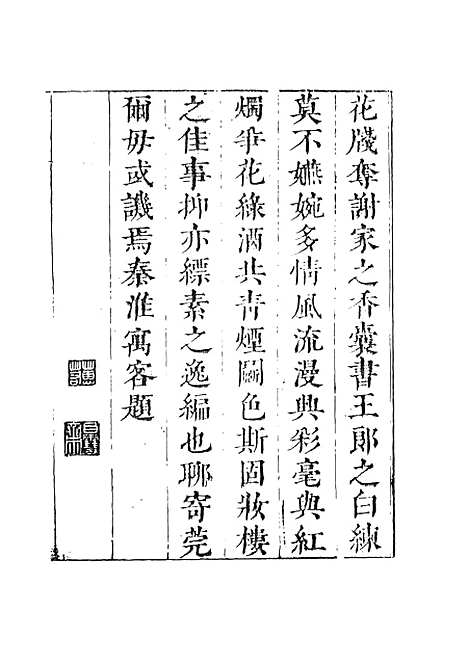 花牋奪謝家之香囊書王郎之白練
莫不嬿婉多情風流漫興彩毫與紅
燭爭花綠酒共青煙鬬色斯固妝樓
之佳事抑亦縹素之逸編也聊寄莞
爾毋或譏焉秦淮寓客題